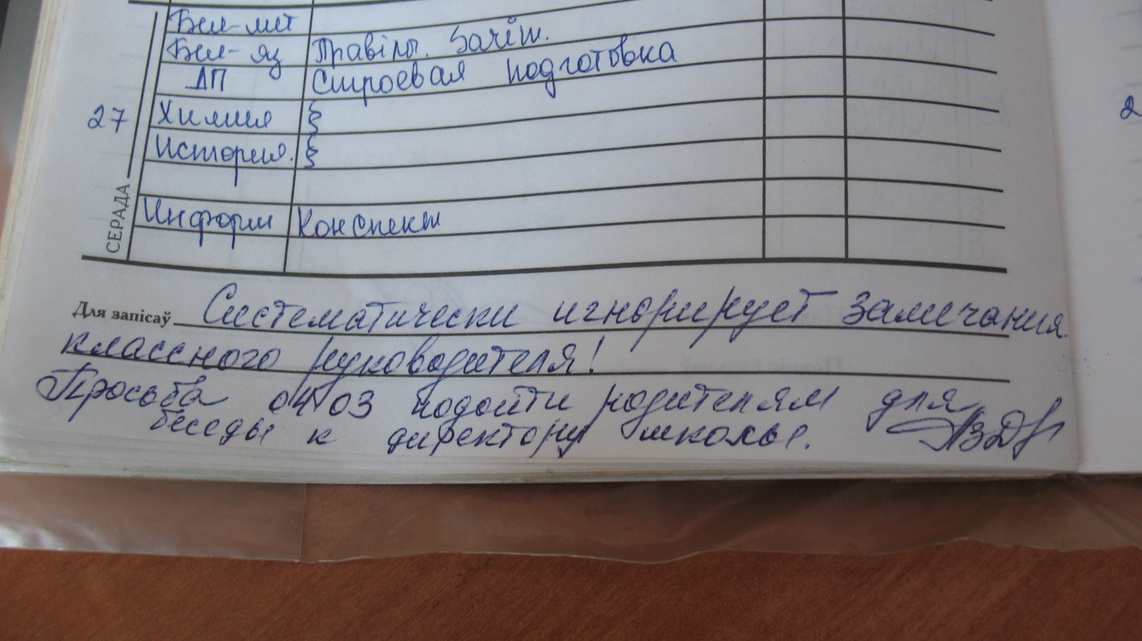 Бел-лит
Бел-яз Правілы. Залік.
ДП Строевая подготовка
27
Химия §
История. §
СЕРАДА
Информ Конспект
Для запісаў Систематически игнорирует замечания
классного руководителя!
Просьба 04 03 подойти родителям для
беседы к директору школы.